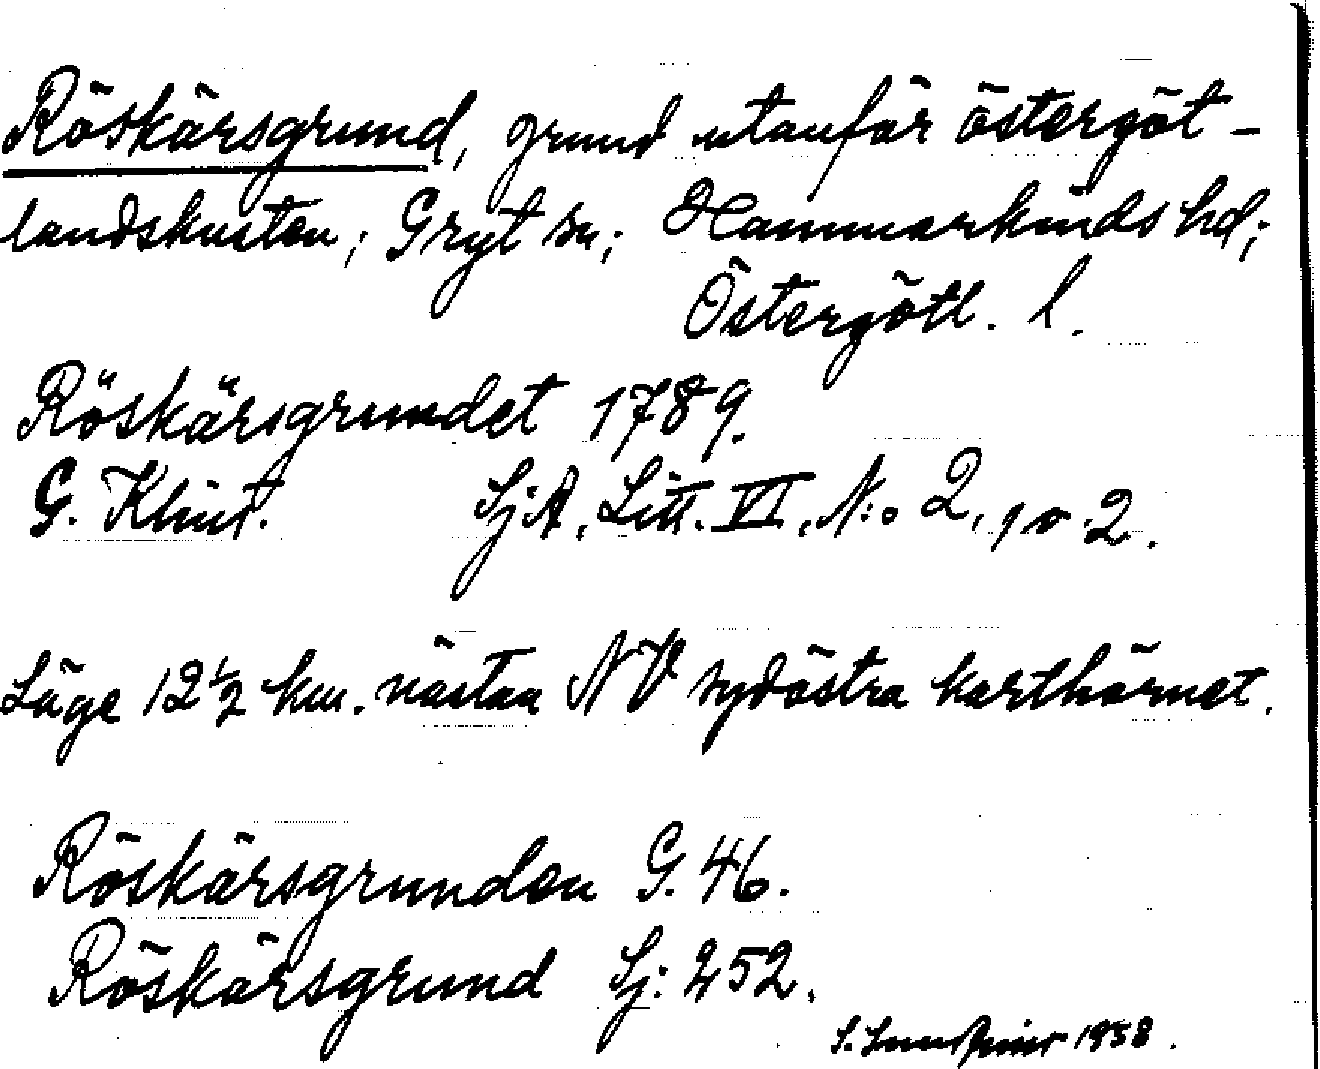 Röskärsgrund, grund utanför östergöt-
landskusten; Gryt sn; Hammarkinds hd;
Östergötl. l.
Röskärsgrundet 1789.
G. Klint. Sj:A, Litt. VI, N:o 2, 1 o 2.
Läge 12 1/2 km. nästan NV sydöstra karthörnet.
Röskärsgrunden G. 46.
Röskärsgrund Sj: 252.
S. 1958.